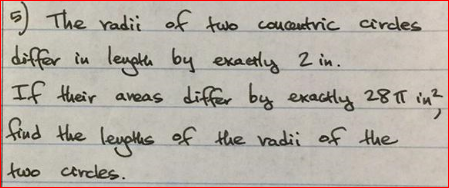 5) The radii of two concentric circles
differ in length by exactly 2 in.
If their areas differ by exactly 28π in²,
find the lengths of the radii of the
two circles.